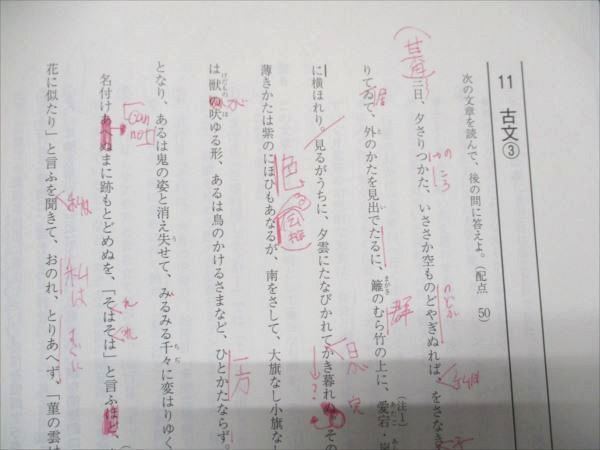 11 古文③
次の文章を読んで、後の問に答えよ。(配点 50)
三日、夕さりつかた、いささか空ものどやぎぬれば、をさなき
りてゐて、外のかたを見出でたるに、籬のむら竹の上に、愛宕・
に横ほれり。見るがうちに、夕雲にたなびかれてかき暮れぬ。その
薄きかたは紫のにほひもあなるが、南をさして、大旗なし小旗なし
は獣の吠ゆる形、あるは鳥のかけるさまなど、ひとかたならず。
となり、あるは鬼の姿と消え失せて、みるみる千々に変はりゆく
名付けあへぬまに跡もとどめぬを、「そはそは」と言ふほど、
花に似たり」と言ふを聞きて、おのれ、とりあへず、「菫の雲は
(注1)
can not
色
群
一方
私は